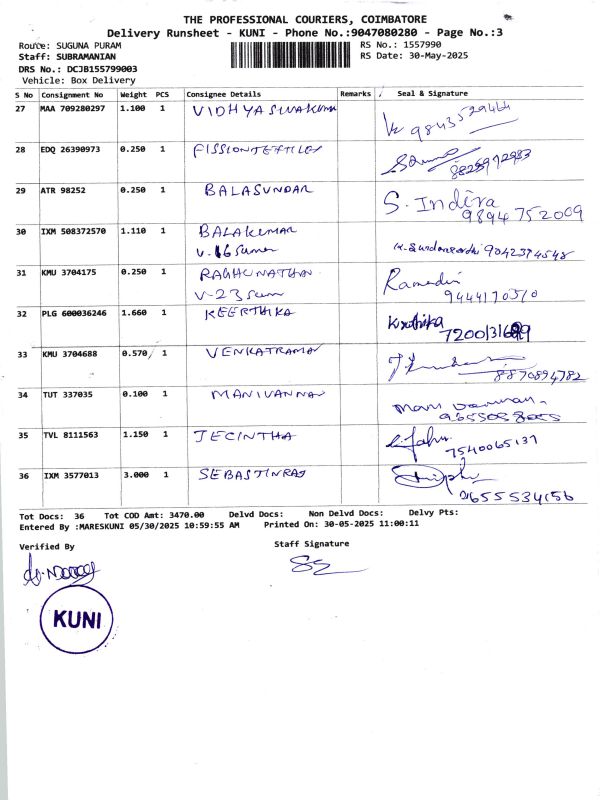 THE PROFESSIONAL COURIERS, COIMBATORE
Delivery Runsheet - KUNI - Phone No.:9047080280 - Page No.:3
Route: SUGUNA PURAM
RS No.: 1557990
Staff: SUBRAMANIAN
RS Date: 30-May-2025
DRS No.: DCJB155799003
Vehicle: Box Delivery
S No Consignment No Weight PCS Consignee Details Remarks Seal & Signature
27 MAA 709280297 1.100 1 VIDHYASIVAKUMAR
9843529464
28 EDQ 26390973 0.250 1 FISSIONTEXTILES
29 ATR 98252 0.250 1 BALASUNDAR S. Indira
9894752009
30 IXM 508372570 1.110 1 BALAKUMAR
V-16 9042374548
31 KMU 3704175 0.250 1 RAGHUNATHAN
V-23
9444170510
32 PLG 600036246 1.660 1 KEERTHIKA
33 KMU 3704688 0.570 1 VENKATRAMAN
8870894782
34 TUT 337035 0.100 1 MANIVANNAN
35 TVL 8111563 1.150 1 JECINTHA
7540065137
36 IXM 3577013 3.000 1 SEBASTINRAJ
9655534156
Tot Docs: 36 Tot COD Amt: 3470.00 Delvd Docs: Non Delvd Docs: Delvy Pts:
Entered By :MARESKUNI 05/30/2025 10:59:55 AM Printed On: 30-05-2025 11:00:11
Verified By Staff Signature
KUNI